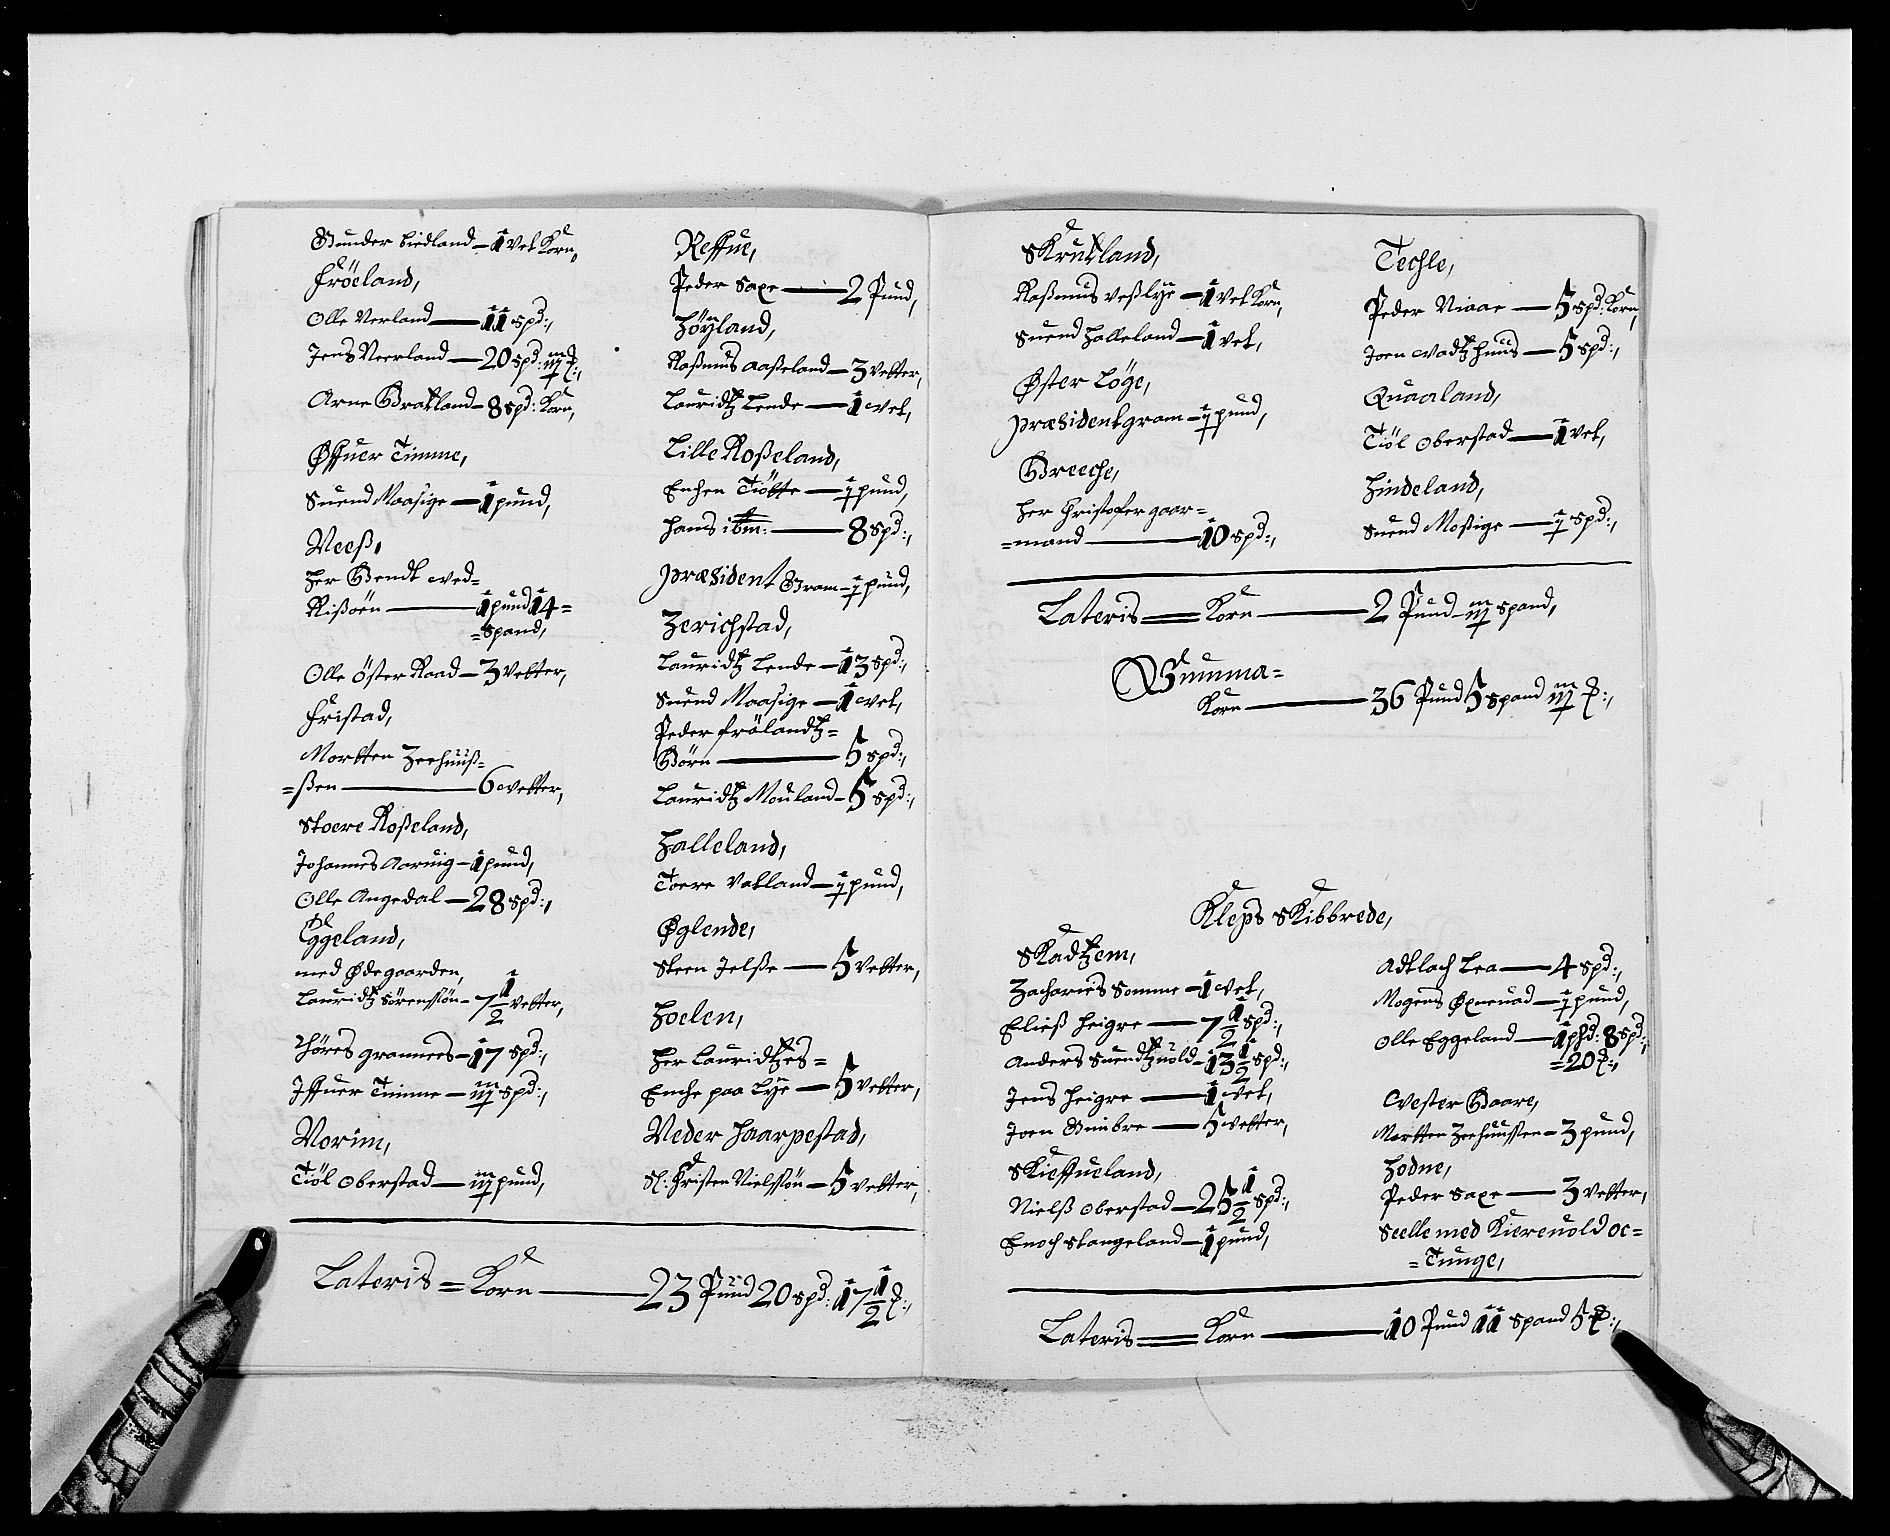 Gunder Liedland — 1 vet Korn,
Fröeland,
Olle Nerland — 11 spd:,
Jens Neerland — 20 spd:
Arne Bratland — 8 spd: Korn,
Øffuer Timme,
Suend Maasige — 1 pund,
Neeß,
Her Bendt wed=
Rißöen — 1 pund 14=
=Spand,
Olle öster Raad — 3 vetter,
Fristad,
Mortten Zeehuuß=
=ßen — 6 vetter,
Stoere Roßeland,
Johannes Aaruig — 1 pund,
Olle Angedal — 28 spd:,
Eggeland,
med Ødegaarden,
Lauridtz Sörenssön — 7 1/2 vetter,
Thöres grannes — 17 spd:,
Iffuer Timme — spd:,
Norim,
Tiöl Oberstad — pund,
Reffue,
Peder Saxe — 2 Pund,
Höyland,
Raßmus Aaßeland — 3 vetter,
Lauridtz Lende — 1 vet,
Lille Roßeland,
Enchen Tiötte — pund,
Hans itm: — 8 spd:,
Præsident Gram — pund,
Herichstad,
Lauridtz Lende — 13 spd:,
Suend Maasige — 1 vet,
Peder frölandtz=
Börn — 5 spd:,
Lauridtz Mouland — 5 spd:,
Halleland,
Toere Vatland — pund,
Øglende,
Steen Jelße — 5 vetter,
Hoelen,
Her Lauridtzes=
Enche paa Lye — 5 vetter,
Neder Haarpestad,
Sl: Kristen Nielssön — 5 vetter,
Lateris = Korn — 23 Pund 20 spd: 17 1/2
Skrutland,
Raßmus Veßlye — 1 vet Korn,
Suend Halleland — 1 vet,
Øster Löge,
Præsident gram — pund,
Breeche,
Her Christofer gaar=
=mand — 10 spd:,
Techle,
Peder Niaae — 5 spd: Korn,
Joen Vadtzhuus — 5 spd:,
Quaaland,
Tiöl Oberstad — 1 vet,
Hindeland,
Suend Moßige — spd:,
Lateris = Korn — 2 Pund Spand,
Summa=
Korn — 36 Pund 5 Spand
Kleps Skibbrede,
Skadtzem,
Zacharies Somme — 1 vet,
Eließ Heigre — 7 1/2 spd:,
Anders Suendtzuold — 13 1/2 spd:,
Jens Heigre — 1 vet,
Joen Gimbre — 5 vetter,
Skieffueland,
Nielß Oberstad — 25 1/2 spd:,
Enoch Stangeland — 1 pund,
Adtlach Lea — 4 spd:,
Mogens Øxneuad — pund,
Olle Eggeland — 1 phd: 8 spd:,
=20
Vester Goare,
Mortten Zeehuussen — 3 pund,
Hodne,
Peder Saxe — 3 vetter,
Seelle med Kiereuold oc=
=Tunge,
Lateris = Korn — 10 Pund 11 Spand 5